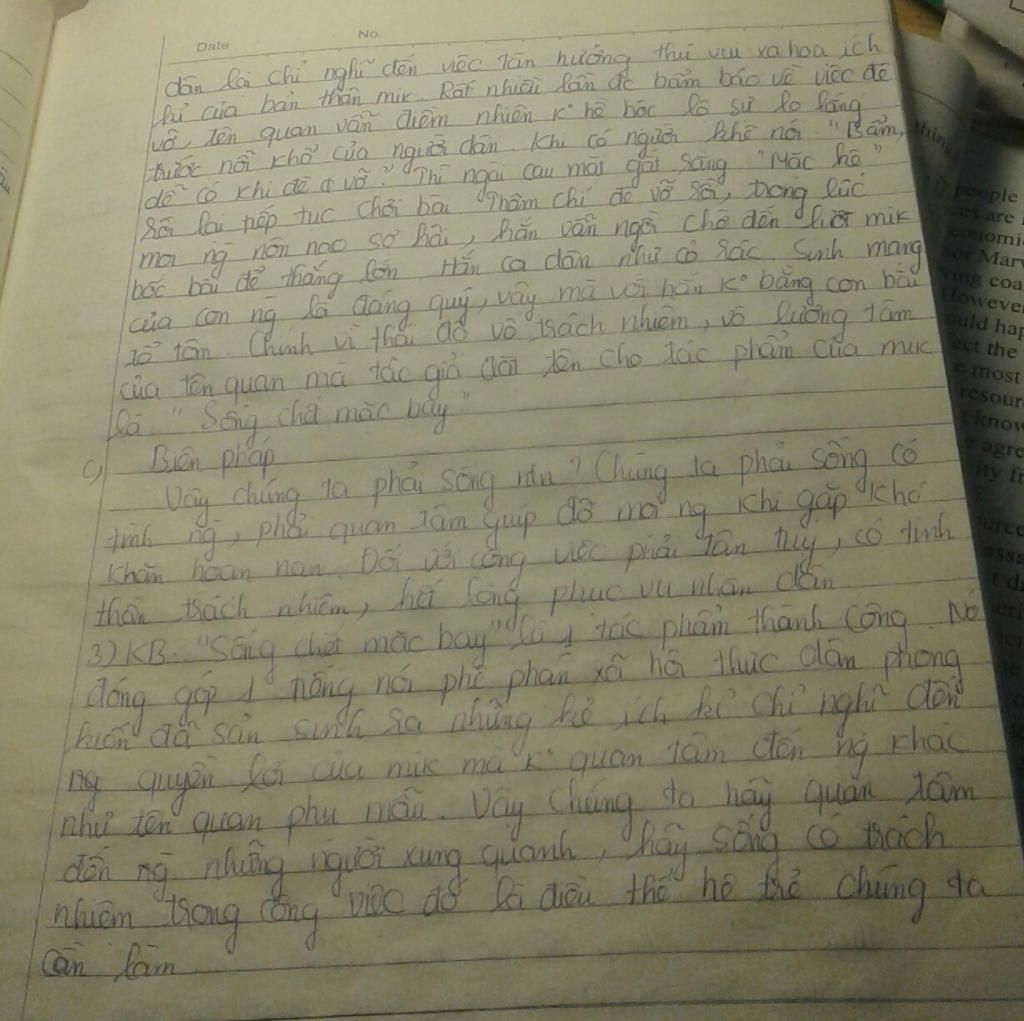 Date No.
dân lại chỉ nghĩ đến việc tận hưởng thú vui xa hoa ích
kỉ của bản thân mik. Rất nhiều lần đc bẩm báo về việc đê
vỡ, tên quan vẫn điềm nhiên k° hề bộc lộ sự lo lắng
trước nỗi khổ của người dân. Khi có người khẽ nói "Bẩm,
dễ có khi đê vỡ." Thì ngài cau mặt gắt rằng "Mặc kệ"
Rồi lại tiếp tục chơi bài. Thậm chí đê vỡ rồi, trong lúc
mọi ng nôn nao sợ hãi, hắn vẫn ngồi chờ đến lượt mik
bốc bài để thắng lớn. Hắn coi dân như cỏ rác. Sinh mạng
của con ng là đáng quý, vậy mà với hắn k° bằng con bài
tổ tôm. Chính vì thái độ vô trách nhiệm, vô lương tâm
của tên quan mà tác giả đặt tên cho tác phẩm của mik
là "Sống chết mặc bay"
c) Biện pháp
Vậy chúng ta phải sống ntn? Chúng ta phải sống có
tình ng, phải quan tâm giúp đỡ mọi ng khi gặp khó
khăn hoạn nạn. Đối với công việc phải tận tụy, có tinh
thần trách nhiệm, hết lòng phục vụ nhân dân
3) KB. "Sống chết mặc bay" là 1 tác phẩm thành công. Nó
đóng góp 1 tiếng nói phê phán xã hội thực dân phong
kiến đã sản sinh ra những kẻ ích kỉ chỉ nghĩ đến
ng quyền lợi của mik mà k° quan tâm đến ng khác
như tên quan phụ mẫu. Vậy chúng ta hãy quan tâm
đến ng những người xung quanh, hãy sống có trách
nhiệm trong công việc đó là điều thế hệ trẻ chúng ta
cần làm
people
are
economic
Mar
coal
However
hap
ect the
most
resour
know
agre